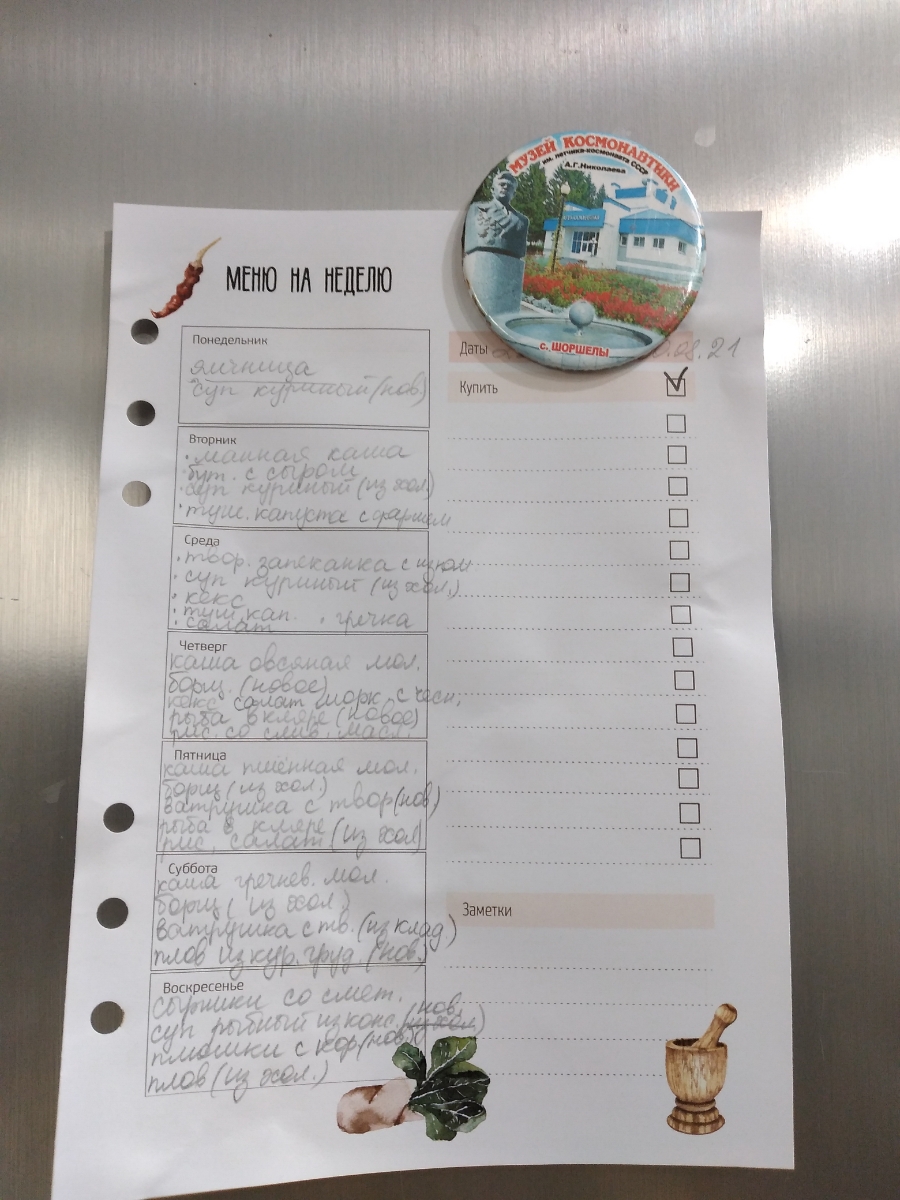 МУЗЕЙ КОСМОНАВТИКИ
им. летчика-космонавта СССР
А.Г.Николаева
с. ШОРШЕЛЫ
МЕНЮ НА НЕДЕЛЮ
Понедельник
яичница
суп куриный (нов.)
Вторник
• манная каша
• бут. с сыром
• суп куриный (из хол)
• туш. капуста с фаршем
Среда
• твор. запеканка с изюм
• суп куриный (из хол.)
• кекс
• туш. кап. • гречка
• салат
Четверг
каша овсяная мол.
борщ. (новое)
кекс салат морк. с чесн.
рыба в кляре (новое)
рис. со слив. масл.
Пятница
каша пшённая мол.
борщ (из хол.)
ватрушка с твор (нов)
рыба в кляре
рис, салат (из хол)
Суббота
каша гречнев. мол.
борщ (из хол.)
ватрушка с тв. (из клад)
плов из кур. груд. (нов.)
Воскресенье
сырники со смет.
нов.
суп рыбный из конс. (из хол)
плюшки с кор (нов)
плов (из хол.)
Даты 08.21
Купить
Заметки